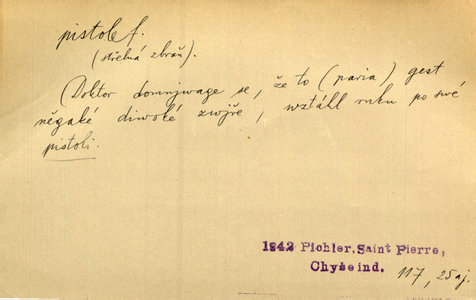 pistole f.
(střelná zbraň).
(Doktor domnjwage se, že to (paria) gest
něgaké diwoké zwjře, wztáhl ruku po swé
pistoli.
1942 Pichler, Saint Pierre,
Chyše ind. 117, 25 aj.